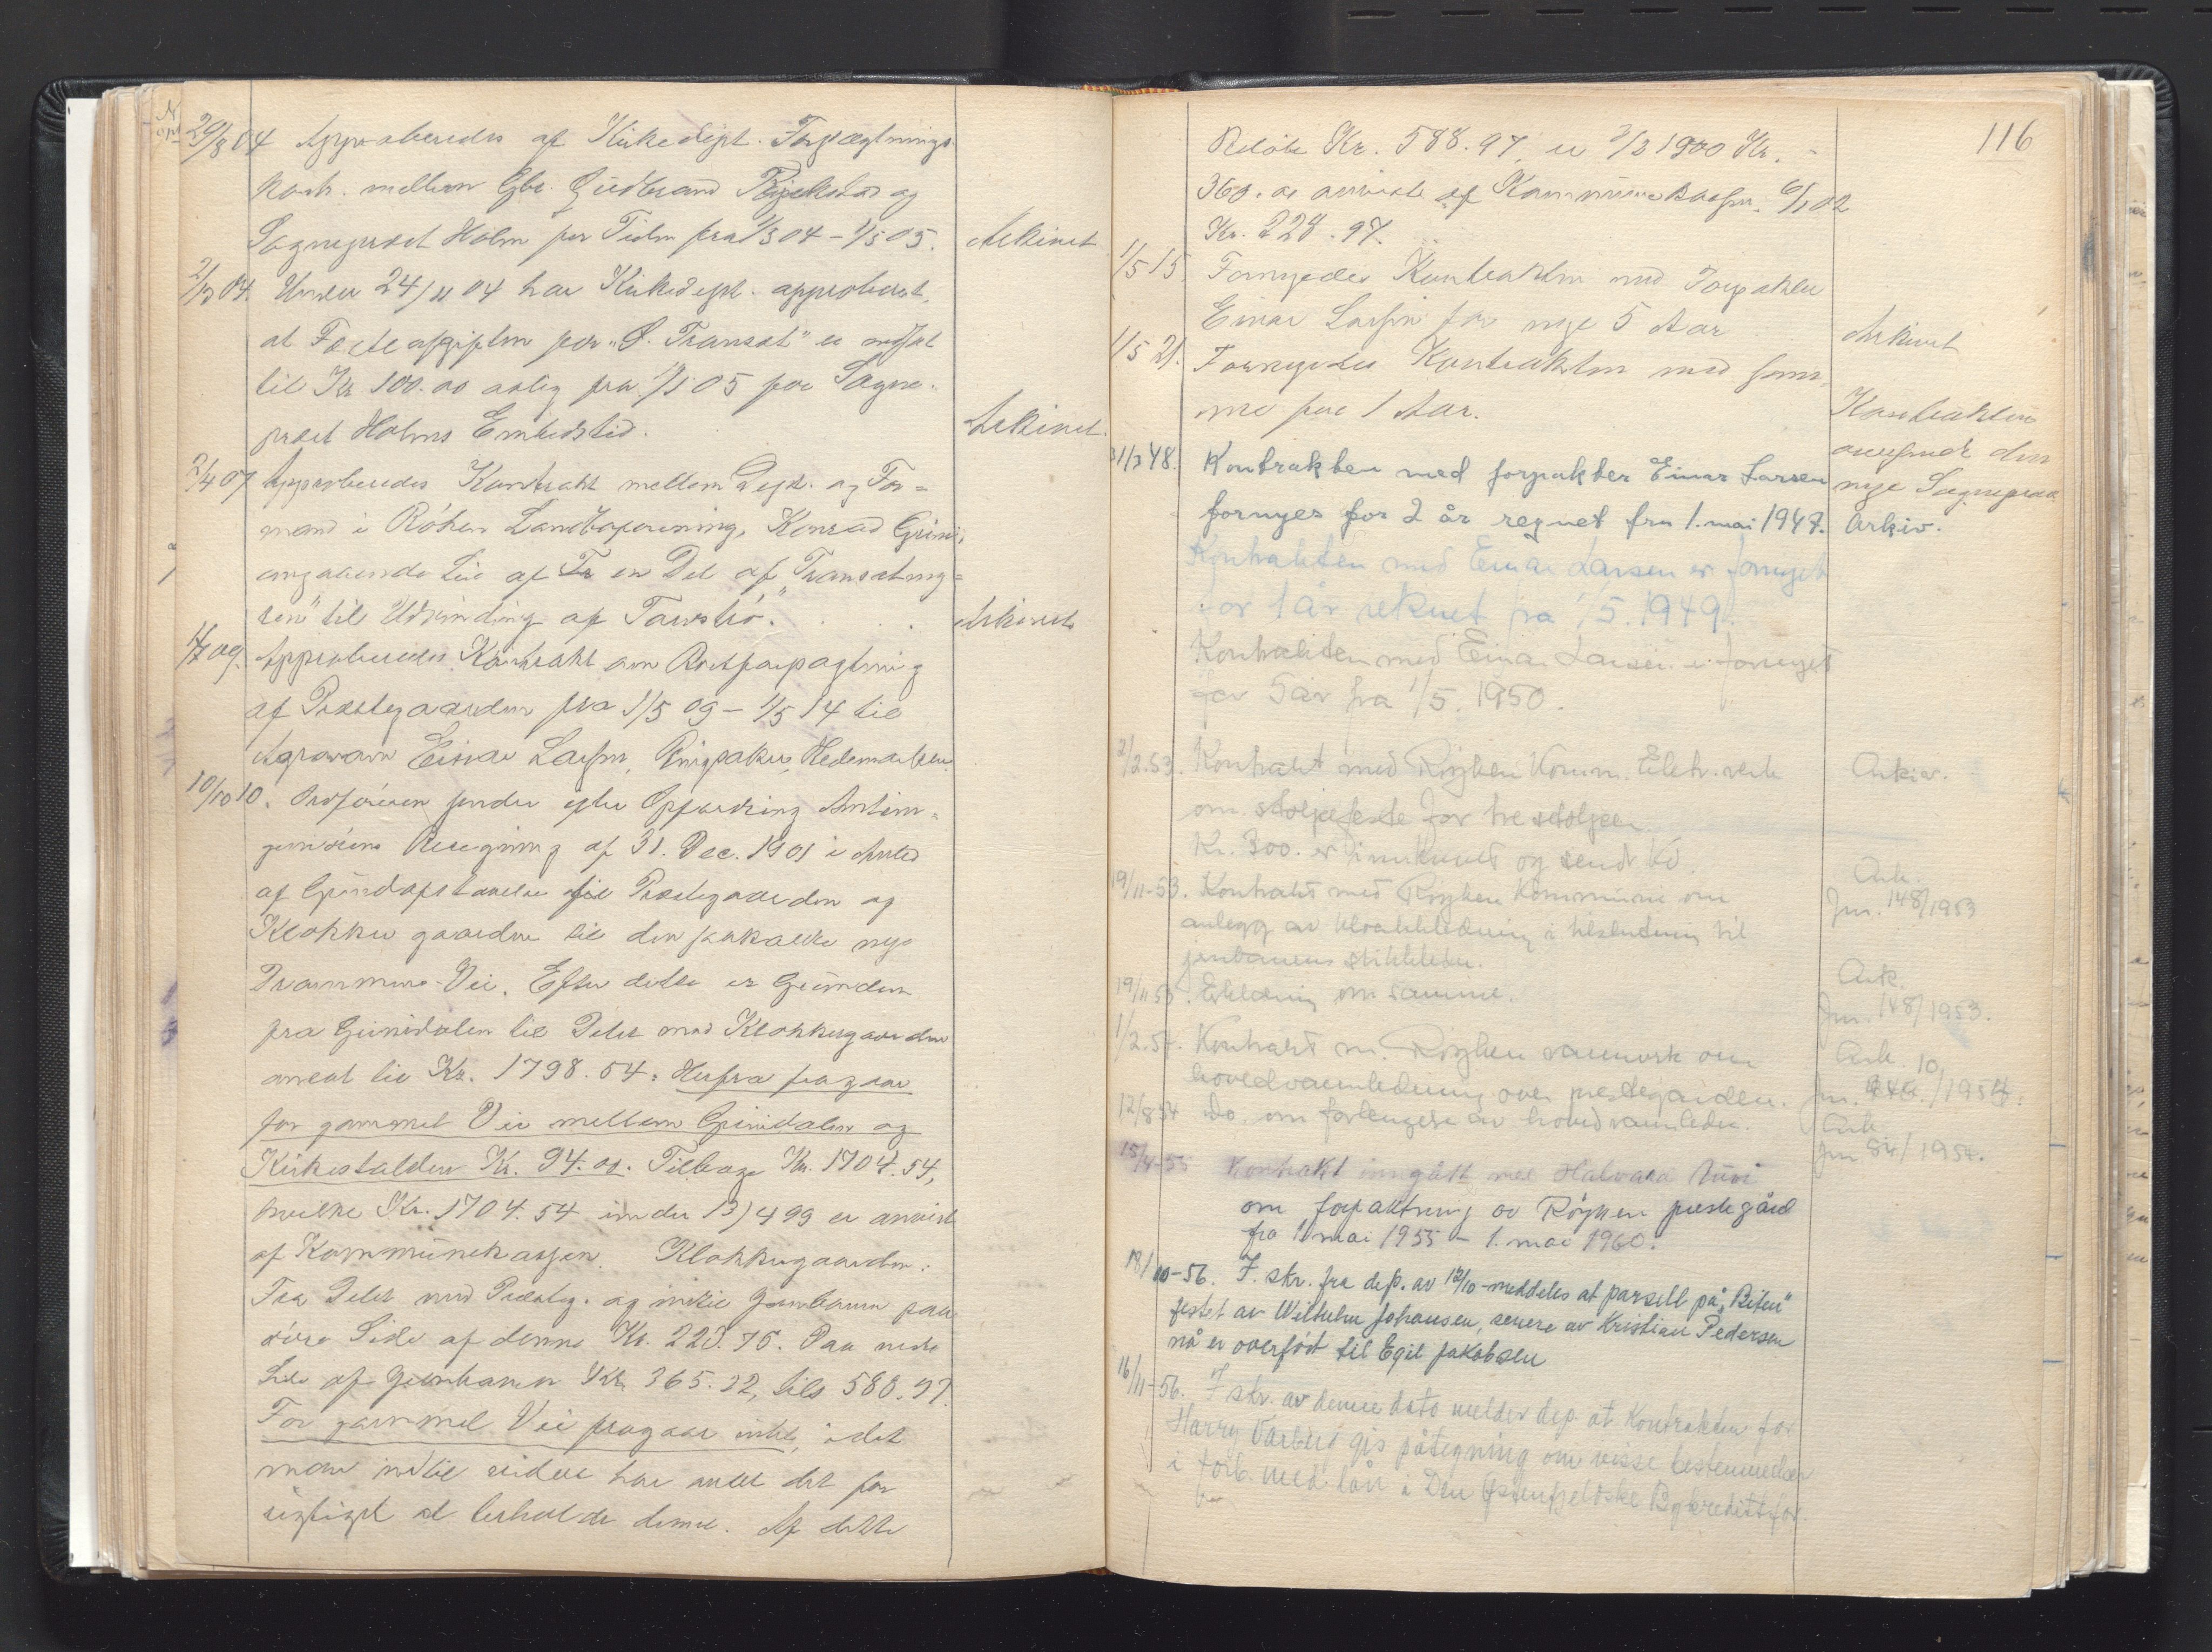 29/8 04 Approberedes af Kirkedept. Forpagtnings-
kontr. mellem Gbr. Gudbrand og
Sogneprest Holm for Tiden fra 1/5 04 - 1/5 05.
Arkivet
2/12 04. Under 24/11 04 har Kirkedept. approberet,
at Festeafgiften for "Ø. Transet" er ansat
til Kr 100.00 aarlig fra 1/1 05 for Sogne-
prest Holms Embedstid.
Arkivet.
2/4 07 Approberedes Kontrakt mellem Dept. og For-
mand i Röken Landboforening, Konrad Grini,
angaaende Leie af en Del af "Transetmy-
ren" til Udvinding af Torvströ.
Arkivet
09. Approberedes Kontrakt om Bortforpagtning
af Prestegaarden fra 1/5 09 - 1/5 14 til
Agronom Einar Larsen, Ringsaker, Hedemarken.
10/10 10. efter Opfordring Amtsin-
geniörens Beregning af 31. Dec. 1901 i Anled
af Grundafstaaelse fra Prestegaarden og
Klokkergaarden til den saakaldte nye
Drammens-Vei. Efter dette er Grunden
fra Grinidalen til Delet mod Klokkergaarden
anslat til Kr. 1798.54. Herfra fragaar
for gammel Vei mellem Grinidalen og
Kirkestalden Kr. 94.00. Tilbage Kr. 1704.54,
hvilke Kr. 1704.54 under 13/4 99 er anvist
af Kommunekassen. Klokkergaarden:
Fra Delet mod Presteg. og indtil Jernbanen paa
övre Side af denne Kr. 223.75. Paa nedre
Side af Jernbanen Kr. 365.22, tils 588.97.
For gammel Vei fragaar intet, idet
man indtil videre har anset det for
rigtigst at beholde denne. Af dette
116
Belöb Kr. 588.97, er 2/3 1900 Kr.
360.00 anvist af Kommunekassen, 6/1 02
Kr. 228.97.
1/5 15 Fornyedes Kontrakten med Forpakter
Einar Larsen for nye 5 Aar
Arkivet
1/5 21. Fornyedes Kontrakten med sam-
me for 1 Aar.
Kontrakten
den
nye Sogneprest
31/3 48. Kontrakten med forpakter Einar Larsen
fornyes for 2 år regnet fra 1. mai 1947.
Arkiv.
Kontrakten med Einar Larsen er fornyet
for 1 år reknet fra 1/5. 1949.
Kontrakten med Einar Larsen er fornyet
for 5 år fra 1/5. 1950.
2/2.53. Kontrakt med Röyken Komm. Elektr.verk
om stolpefeste for tre stolper.
Kr. 300. er innkrevet og sendt
Arkiv.
19/11-53. Kontrakt med Röyken Kommune om
anlegg av kloakkledning i tilslutning til
jernbanens stikkledn.
Ark.
Jnr. 148/1953
19/11 53. Erklæring om samme.
Ark.
Jnr. 148/1953.
1/2.54. Kontrakt m. Röyken vannverk om
hovedvannledning over prestegården.
Ark. 10
Jnr. /1954.
12/8 54 Do. om forlengelse av hovedvannledn.
Ark
Jnr 84/1954.
15/4-55 Kontrakt inngått med Halvard
om forpaktning av Röyken prestegård
fra 1 mai 1955 - 1. mai 1960.
18/10-56. I skr. fra dep. av 12/10 meddeles at parsell på "Biten"
festet av Wilhelm Johansen, senere av Kristian Pedersen
nå er overført til Egil Jakobsen
16/11-56. I skr. av denne dato melder dep. at kontrakten for
Harry gis påtegning om visse bestemmelser
i forb. med lån i Den Østenfjelske Bykredittfor.